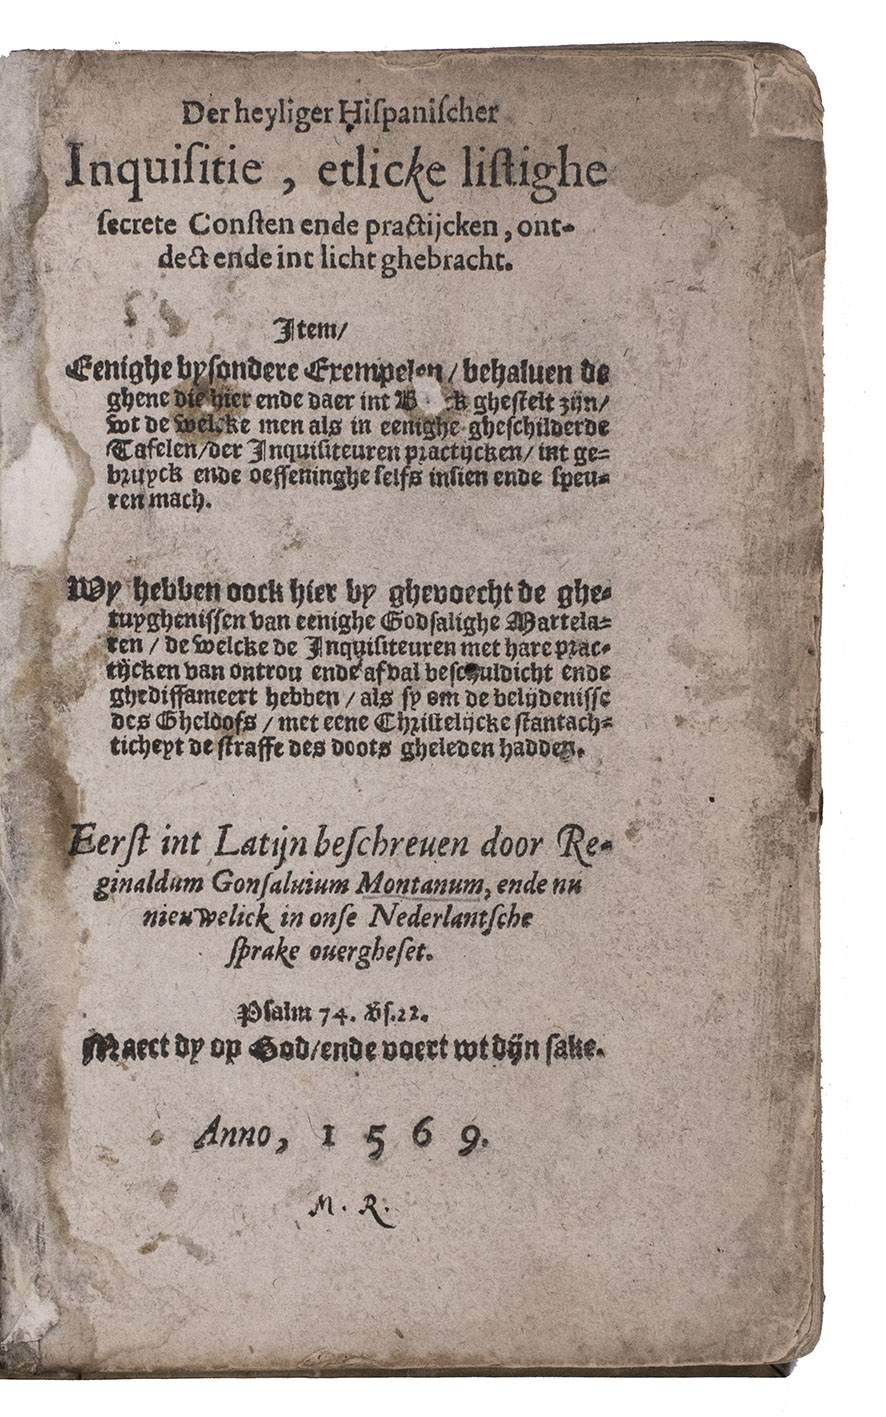 Der heyliger Hiſpaniſcher
Inquiſitie, etlicke liſtighe
ſecrete Conſten ende practijcken, ont-
dect ende int licht ghebracht.
Item/
Eenighe byſondere Exempelen/ behaluen de
ghene die hier ende daer int gheſtelt zijn/
wt de welcke men als in eenighe gheſchilderde
Tafelen/der Inquiſiteuren practijcken/ int ge-
bruyck ende oeffeninghe ſelfs inſien ende ſpeu-
ren mach.
Wy hebben oock hier by ghevoecht de ghe-
tuyghenissen van eenighe Godſalighe Martela-
ren / de welcke de Inquiſiteuren met hare prac-
tijcken van ontrou ende afval beſchuldicht ende
ghediffameert hebben / als ſy om de belijdenisse
des Gheloofs / met eene Chriſtelijcke ſtantach-
ticheyt de ſtraffe des doots gheleden hadden.
Eerſt int Latijn beſchreuen door Re-
ginaldum Gonſaluium Montanum, ende nu
nieuwelick in onſe Nederlantſche
ſprake ouergheſet.
Pſalm 74. Vſ.22.
Maect dy op God/ende voert wt dijn ſake.
Anno, 1569.
M. R.